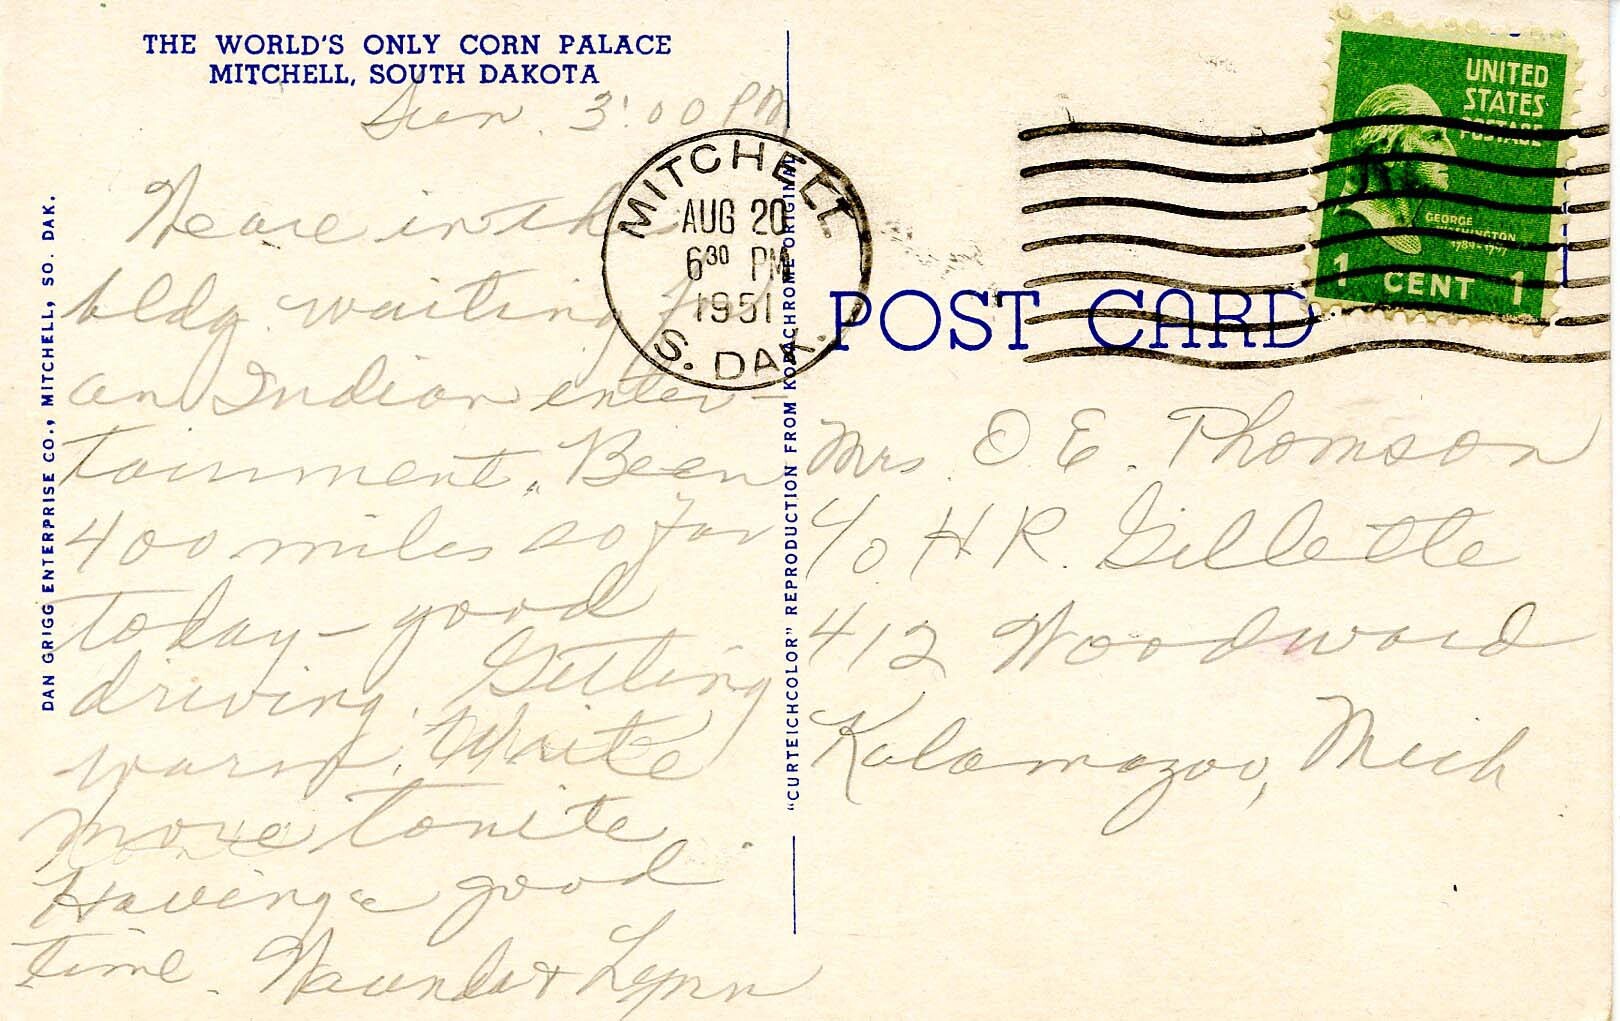 THE WORLD'S ONLY CORN PALACE
MITCHELL, SOUTH DAKOTA
Sun. 3:00 PM
We are in the
bldg. waiting for
an Indian enter-
tainment. Been
400 miles so far
today - good
driving. Getting
warm. Write
more tonite.
Having a good
time. & Lynn
DAN GRIGG ENTERPRISE CO., MITCHELL, SO. DAK.
"CURTEICHCOLOR" REPRODUCTION FROM KODACHROME ORIGINAL
MITCHELL
AUG 20
6 30 PM
1951
S. DAK.
UNITED
STATES
POSTAGE
GEORGE
WASHINGTON
1789-1797
1 CENT 1
POST CARD
Mrs. O E. Thomson
c/o H R. Gillette
412 Woodward
Kalamazoo, Mich